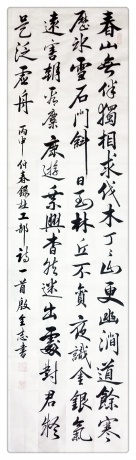 春山无伴獨相求伐木丁丁山更幽澗道餘寒
歷冰雪石門斜日到林丘不貪夜識金銀氣
遠害朝看麋鹿遊乘興杳然迷出處對君疑
是泛虛舟 丙申仲春錄杜工部詩一首殷金志書